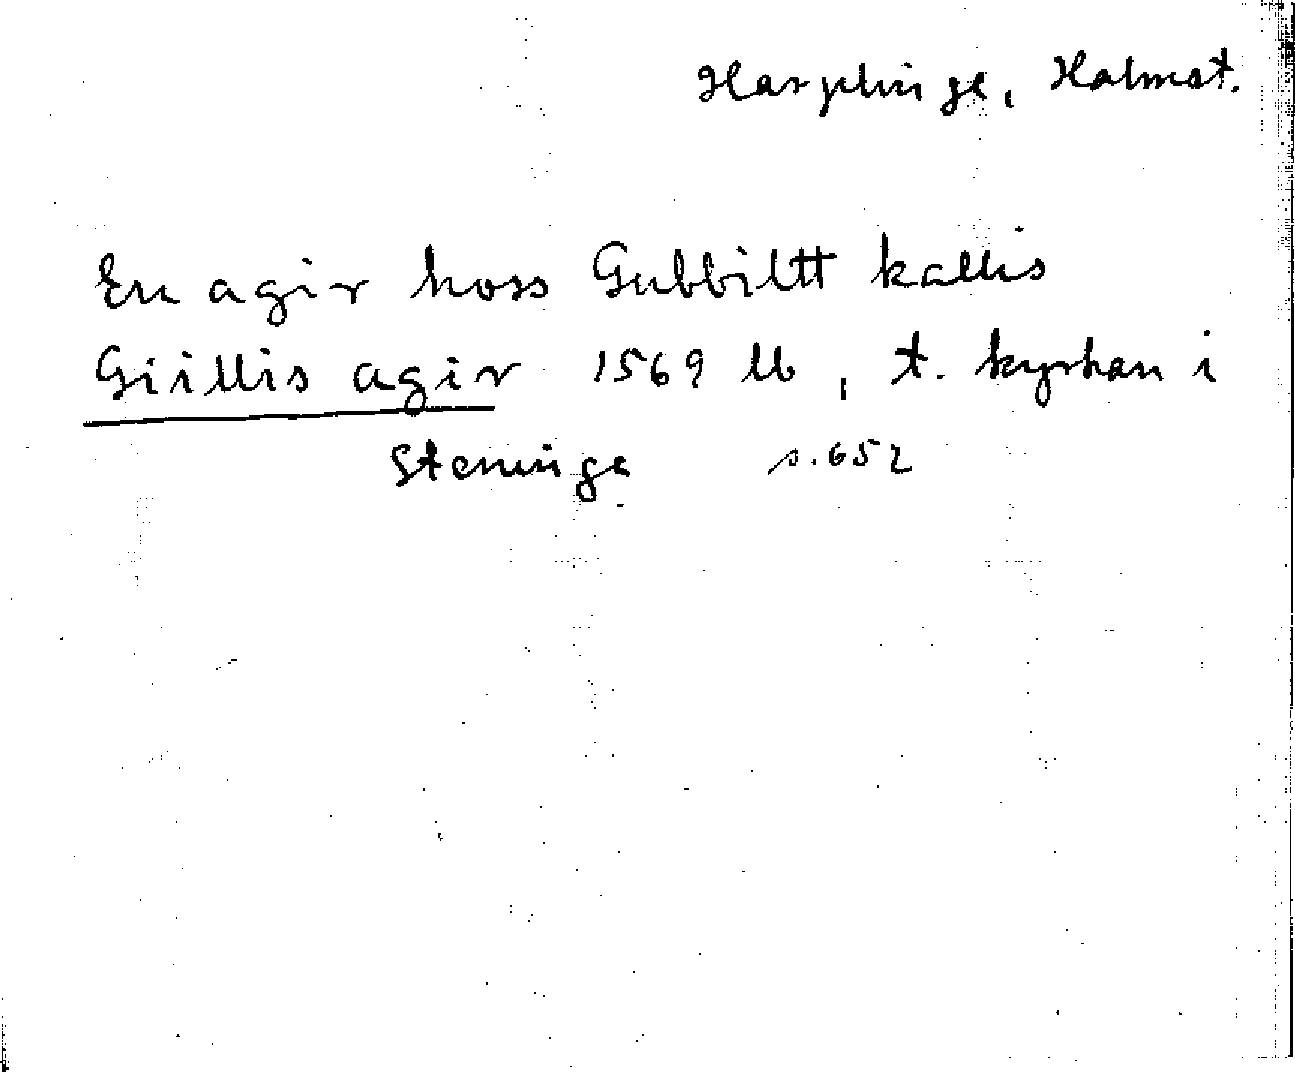 Harplinge, Halmst.
En agir hoss Gubbiltt kallis
Giillis agir 1569 lb, t. kyrkan i
Steninge s.652